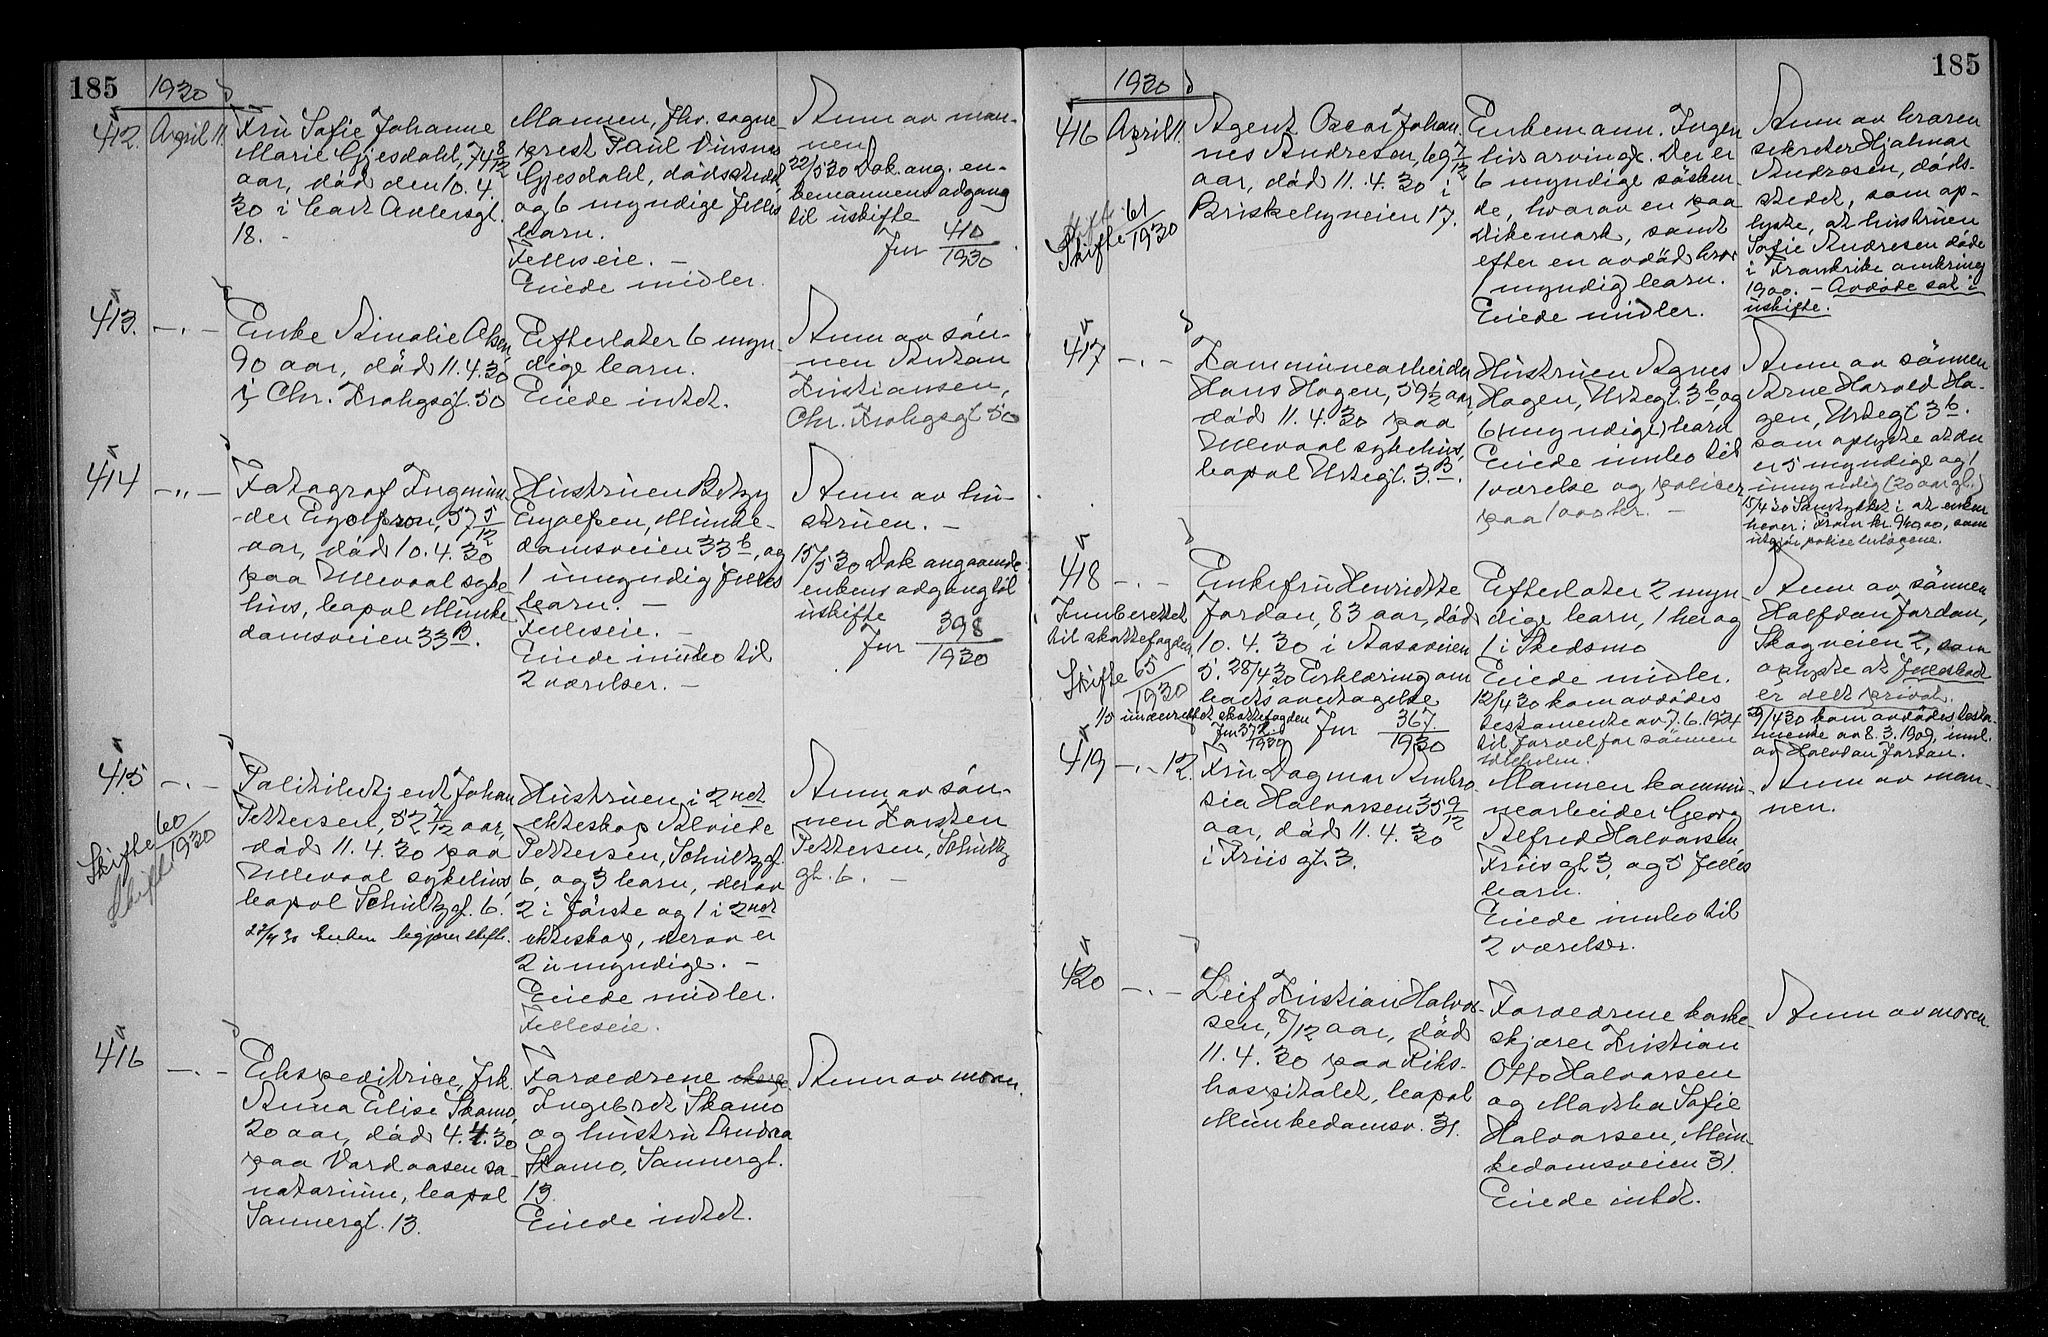 185
1930
412. April 11.
Fru Sofie Johanne
Marie Gjesdahl, 74 8/12
aar, død den 10. 4.
30 i Cort Adlersgt.
18. -
Mannen, fhv. sogne-
prest Paul Vinsnes
Gjesdahl, dødsstedet
og 6 myndige felles
barn.
Felleseie. -
Eiede midler.
Anm av man-
nen
22/5 30 Dok. ang. en-
kemannens adgang
til uskifte
Jnr 410/1930
413. -.-
Enke Amalie Olsen,
90 aar, død 11.4.30
i Chr. Krohgsgt. 50
Efterlater 6 myn-
dige barn.
Eiede intet.
Anm av søn-
nen Anton
Kristiansen,
Chr. Krohgsgt 50
414 -"-
Fotograf Ingmun-
der Eyolfson, 57 5/12
aar, død 10.4.30
paa Ullevaal syke-
hus, bopel Munke
damsveien 33 B.
Hustruen Betzy
Eyolfsen, Munke-
damsveien 33 b, og
1 umyndig felles
barn. -
Felleseie. -
Eiede innbo til
2 værelser. -
Anm av hu-
struen. -
15/5 30 Dok angaaende
enkens adgang til
uskifte
Jnr 398/1930
415 -.-
Skifte 60/1930
Skifte
Politibetjent Johan
Pettersen, 52 7/12 aar,
død 11.4.30 paa
Ullevaal sykehus
bopel Schultzgt. 6.
22/4 30 Enken begjærer skifte.
Hustruen i 2net
ekteskap Alviede
Pettersen, Schultzgt.
6, og 3 barn, derav
2 i første og 1 i 2net
ekteskap, derav er
2 umyndige. -
Eiede midler.
Felleseie.
Anm av søn-
nen Karsten
Pettersen, Schultz
gt. 6. -
416 -.-
Ekspeditrice, frk.
Anna Elise Skamo,
20 aar, død 4.4.30
paa Vardaasen sa-
natorium, bopel
Sannergt. 13.
Forældrene
Ingebret Skamo
og hustru Andrea
Skamo, Sannergt.
13.
Eiede intet.
Anm av moren.
185
1930
416 April 11.
Skifte 61/1930
Agent Oscar Johan-
nes Andresen, 69 7/12
aar, død 11.4.30 i
Briskebyveien 17.
Enkemann. Ingen
livsarvinger. Der er
6 myndige søsken-
de, hvorav en paa
Dikemark, samt
efter en avdød bror
1 myndig barn.
Eiede midler.
Anm av broren
sekretær Hjalmar
Andresen, døds-
stedet, som op-
lyste, at hustruen
Sofie Andresen døde
i Frankrike omkring
1900. - Avdøde sat i
uskifte.
417 -.-
Kommunearbeider
Hans Hagen, 59 1/2 aar,
død 11.4.30 paa
Ullevaal sykehus,
bopel Urtegt. 3. B.
Hustruen Agnes
Hagen, Urtegt. 3 b, og
6 (myndige) barn
Eiede innbo til
1 værelse og poliser
paa 1000 kr. -
Anm av sønnen
Arne Harald Ha-
gen, Urtegt 3 b.
som oplyste at der
er 5 myndige og 1
umyndig (20 aar gl.)
15/4 30 Samtykket i at enken
hever i Fram kr. 940,00, som
utgjør policebeløpene.
418 -.-
Innberettet
til skattefogden
Skifte 65/1930
Enkefru Henriette
Jordan, 83 aar, død
10.4.30 i Aasaveien
5. 28/4 30 Erklæring om
boets overtagelse
Jnr 367/1930
1/5 underrettet skattefogden
Jnr 372/1930
Efterlater 2 myn-
dige barn, 1 her og
1 i Skedsmo
Eiede midler.
12/4 30 kom avdødes
testamente av 7.6.1924
til fordel for sønnen
Wilhelm.
Anm av sønnen
Halfdan Jordan,
Skogveien 2, som
oplyste at fullstend
er delt privat.
29/4 30 kom avdødes testa-
mente av 8.3.1909, innl.
av Halvdan Jordan.
419 -.- 12.
Fru Dagmar Ambro-
sia Halvorsen 35 9/12
aar, død 11.4.30
i Friisgt. 3.
Mannen kommu-
nearbeider Georg
Alfred Halvorsen,
Friisgt 3, og 5 felles
barn.
Eiede innbo til
2 værelser.
Anm av man-
nen.
420 -.-
Leif Kristian Halvor-
sen, 8/12 aar, død
11.4.30 paa Riks-
hospitalet, bopel
Munkedamsv. 31.
Forældrene korke-
skjærer Kristian
Otto Halvorsen
og Martha Sofie
Halvorsen, Mun-
kedamsveien 31.
Eiede intet.
Anm av moren.